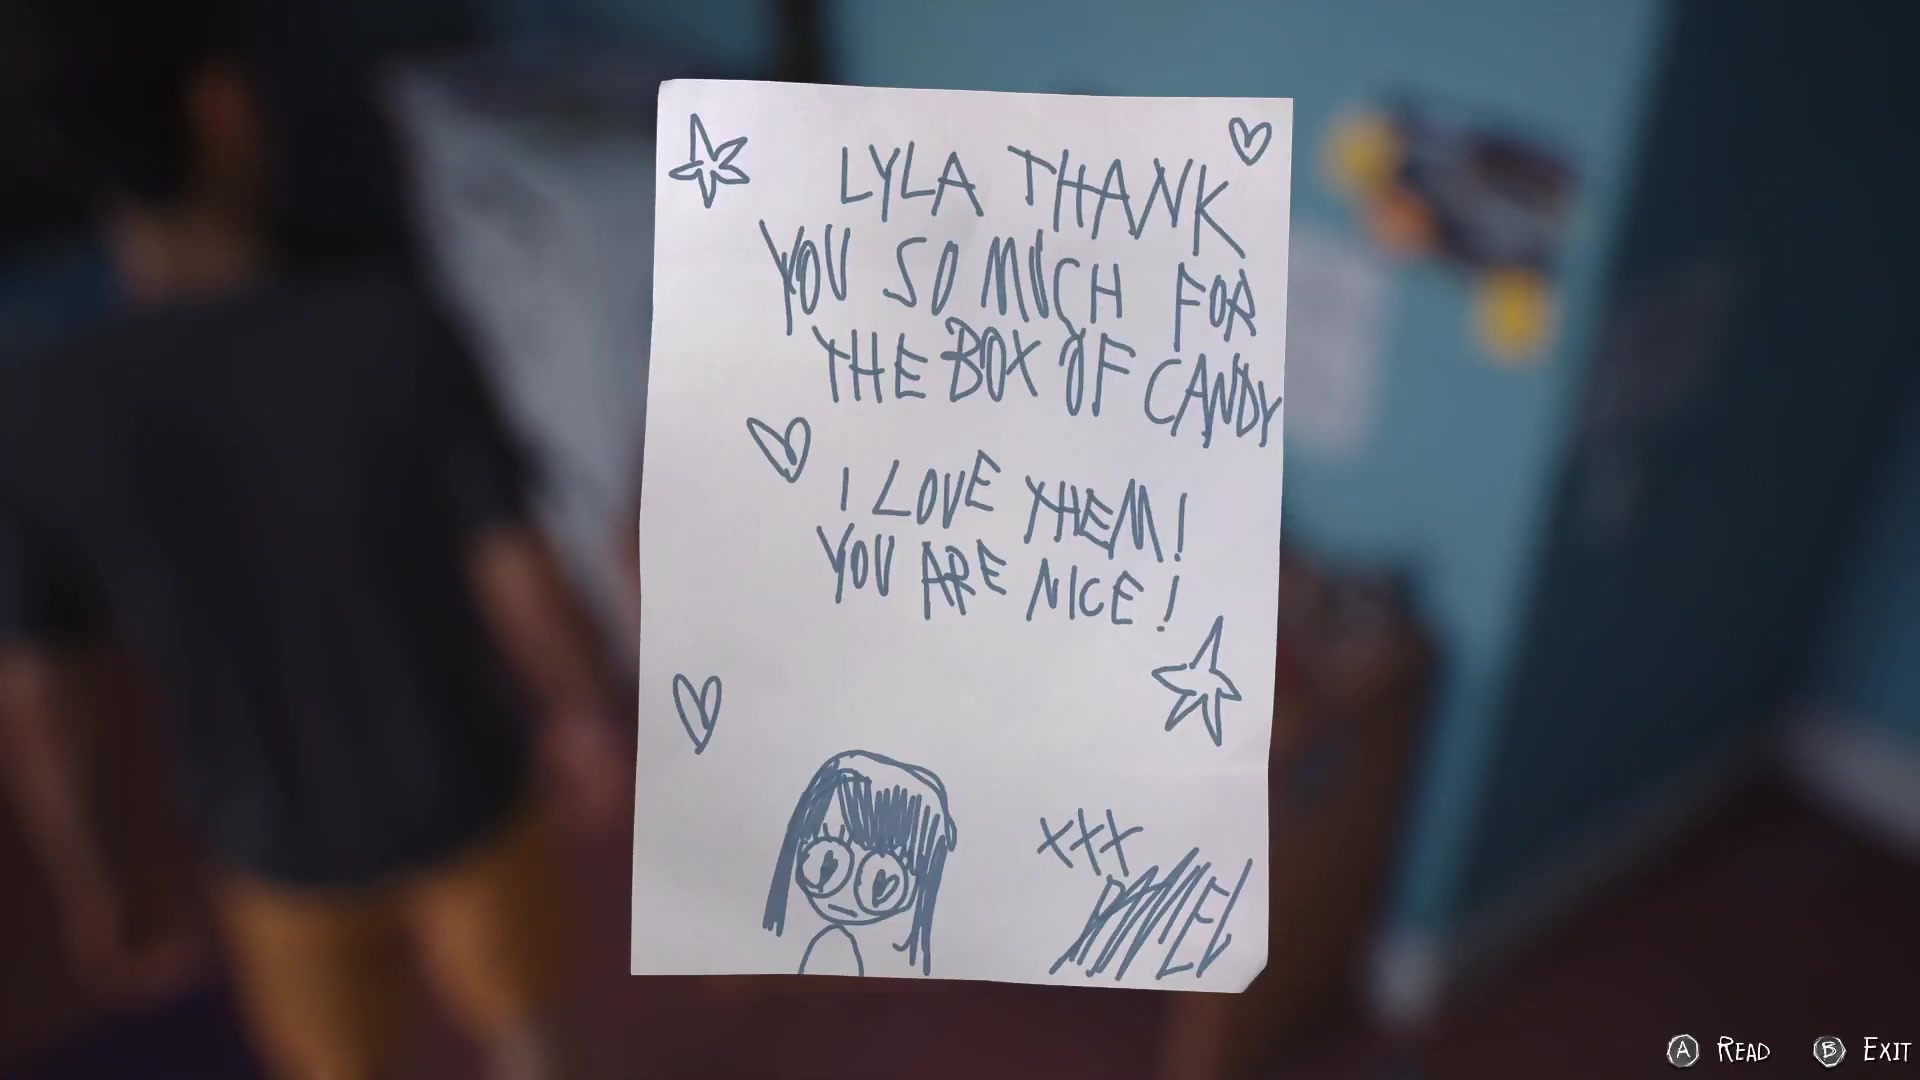 LYLA THANK
YOU SO MUCH FOR
THE BOX OF CANDY
I LOVE THEM!
YOU ARE NICE!
XXX
DANIEL
A READ B EXIT